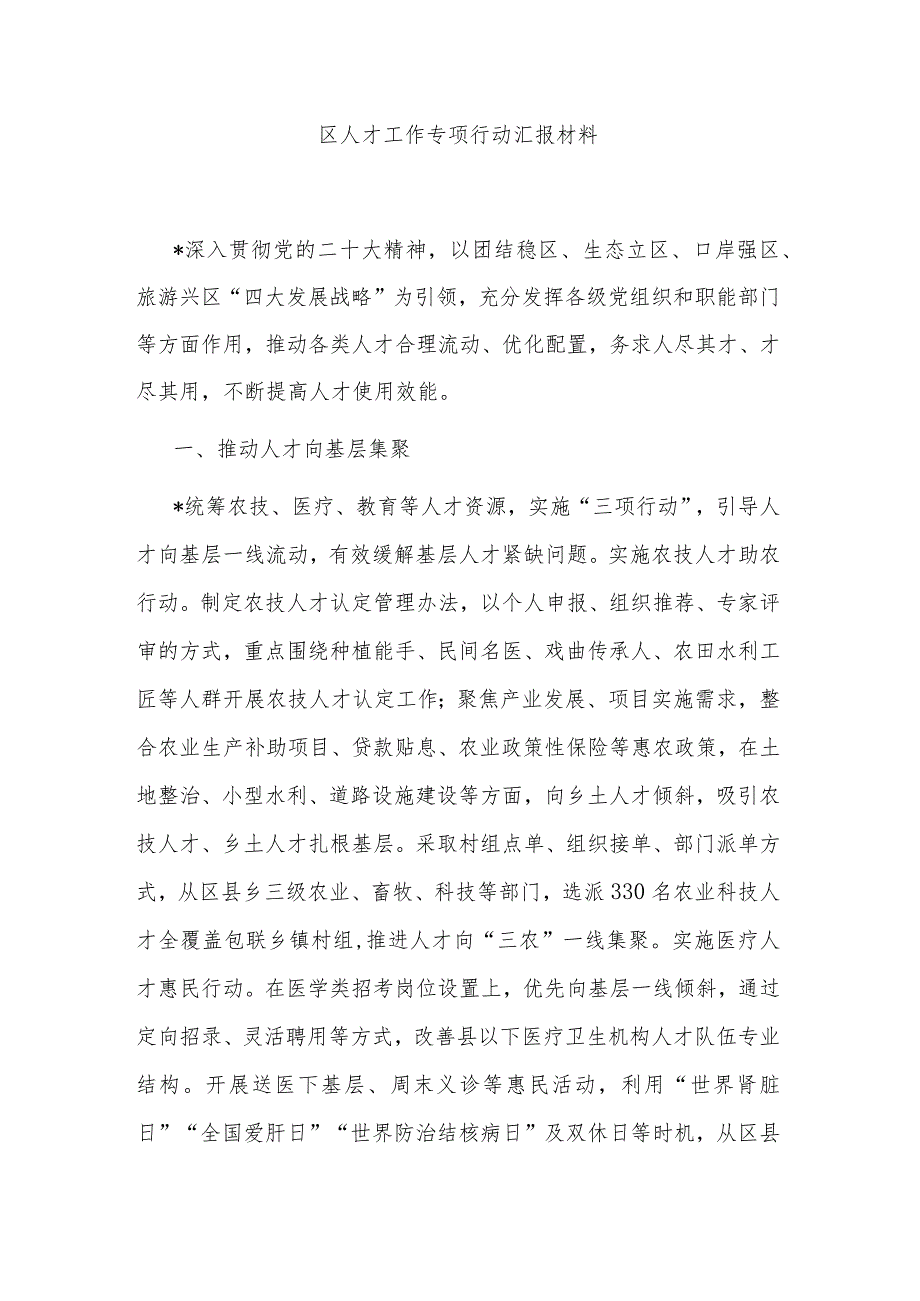 区人才工作专项行动汇报材料
*深入贯彻党的二十大精神，以团结稳区、生态立区、口岸强区、
旅游兴区“四大发展战略”为引领，充分发挥各级党组织和职能部门
等方面作用，推动各类人才合理流动、优化配置，务求人尽其才、才
尽其用，不断提高人才使用效能。
一、推动人才向基层集聚
*统筹农技、医疗、教育等人才资源，实施“三项行动”，引导人
才向基层一线流动，有效缓解基层人才紧缺问题。实施农技人才助农
行动。制定农技人才认定管理办法，以个人申报、组织推荐、专家评
审的方式，重点围绕种植能手、民间名医、戏曲传承人、农田水利工
匠等人群开展农技人才认定工作；聚焦产业发展、项目实施需求，整
合农业生产补助项目、贷款贴息、农业政策性保险等惠农政策，在土
地整治、小型水利、道路设施建设等方面，向乡土人才倾斜，吸引农
技人才、乡土人才扎根基层。采取村组点单、组织接单、部门派单方
式，从区县乡三级农业、畜牧、科技等部门，选派 330 名农业科技人
才全覆盖包联乡镇村组,推进人才向“三农”一线集聚。实施医疗人
才惠民行动。在医学类招考岗位设置上，优先向基层一线倾斜，通过
定向招录、灵活聘用等方式，改善县以下医疗卫生机构人才队伍专业
结构。开展送医下基层、周末义诊等惠民活动，利用“世界肾脏
日”“全国爱肝日”“世界防治结核病日”及双休日等时机，从区县